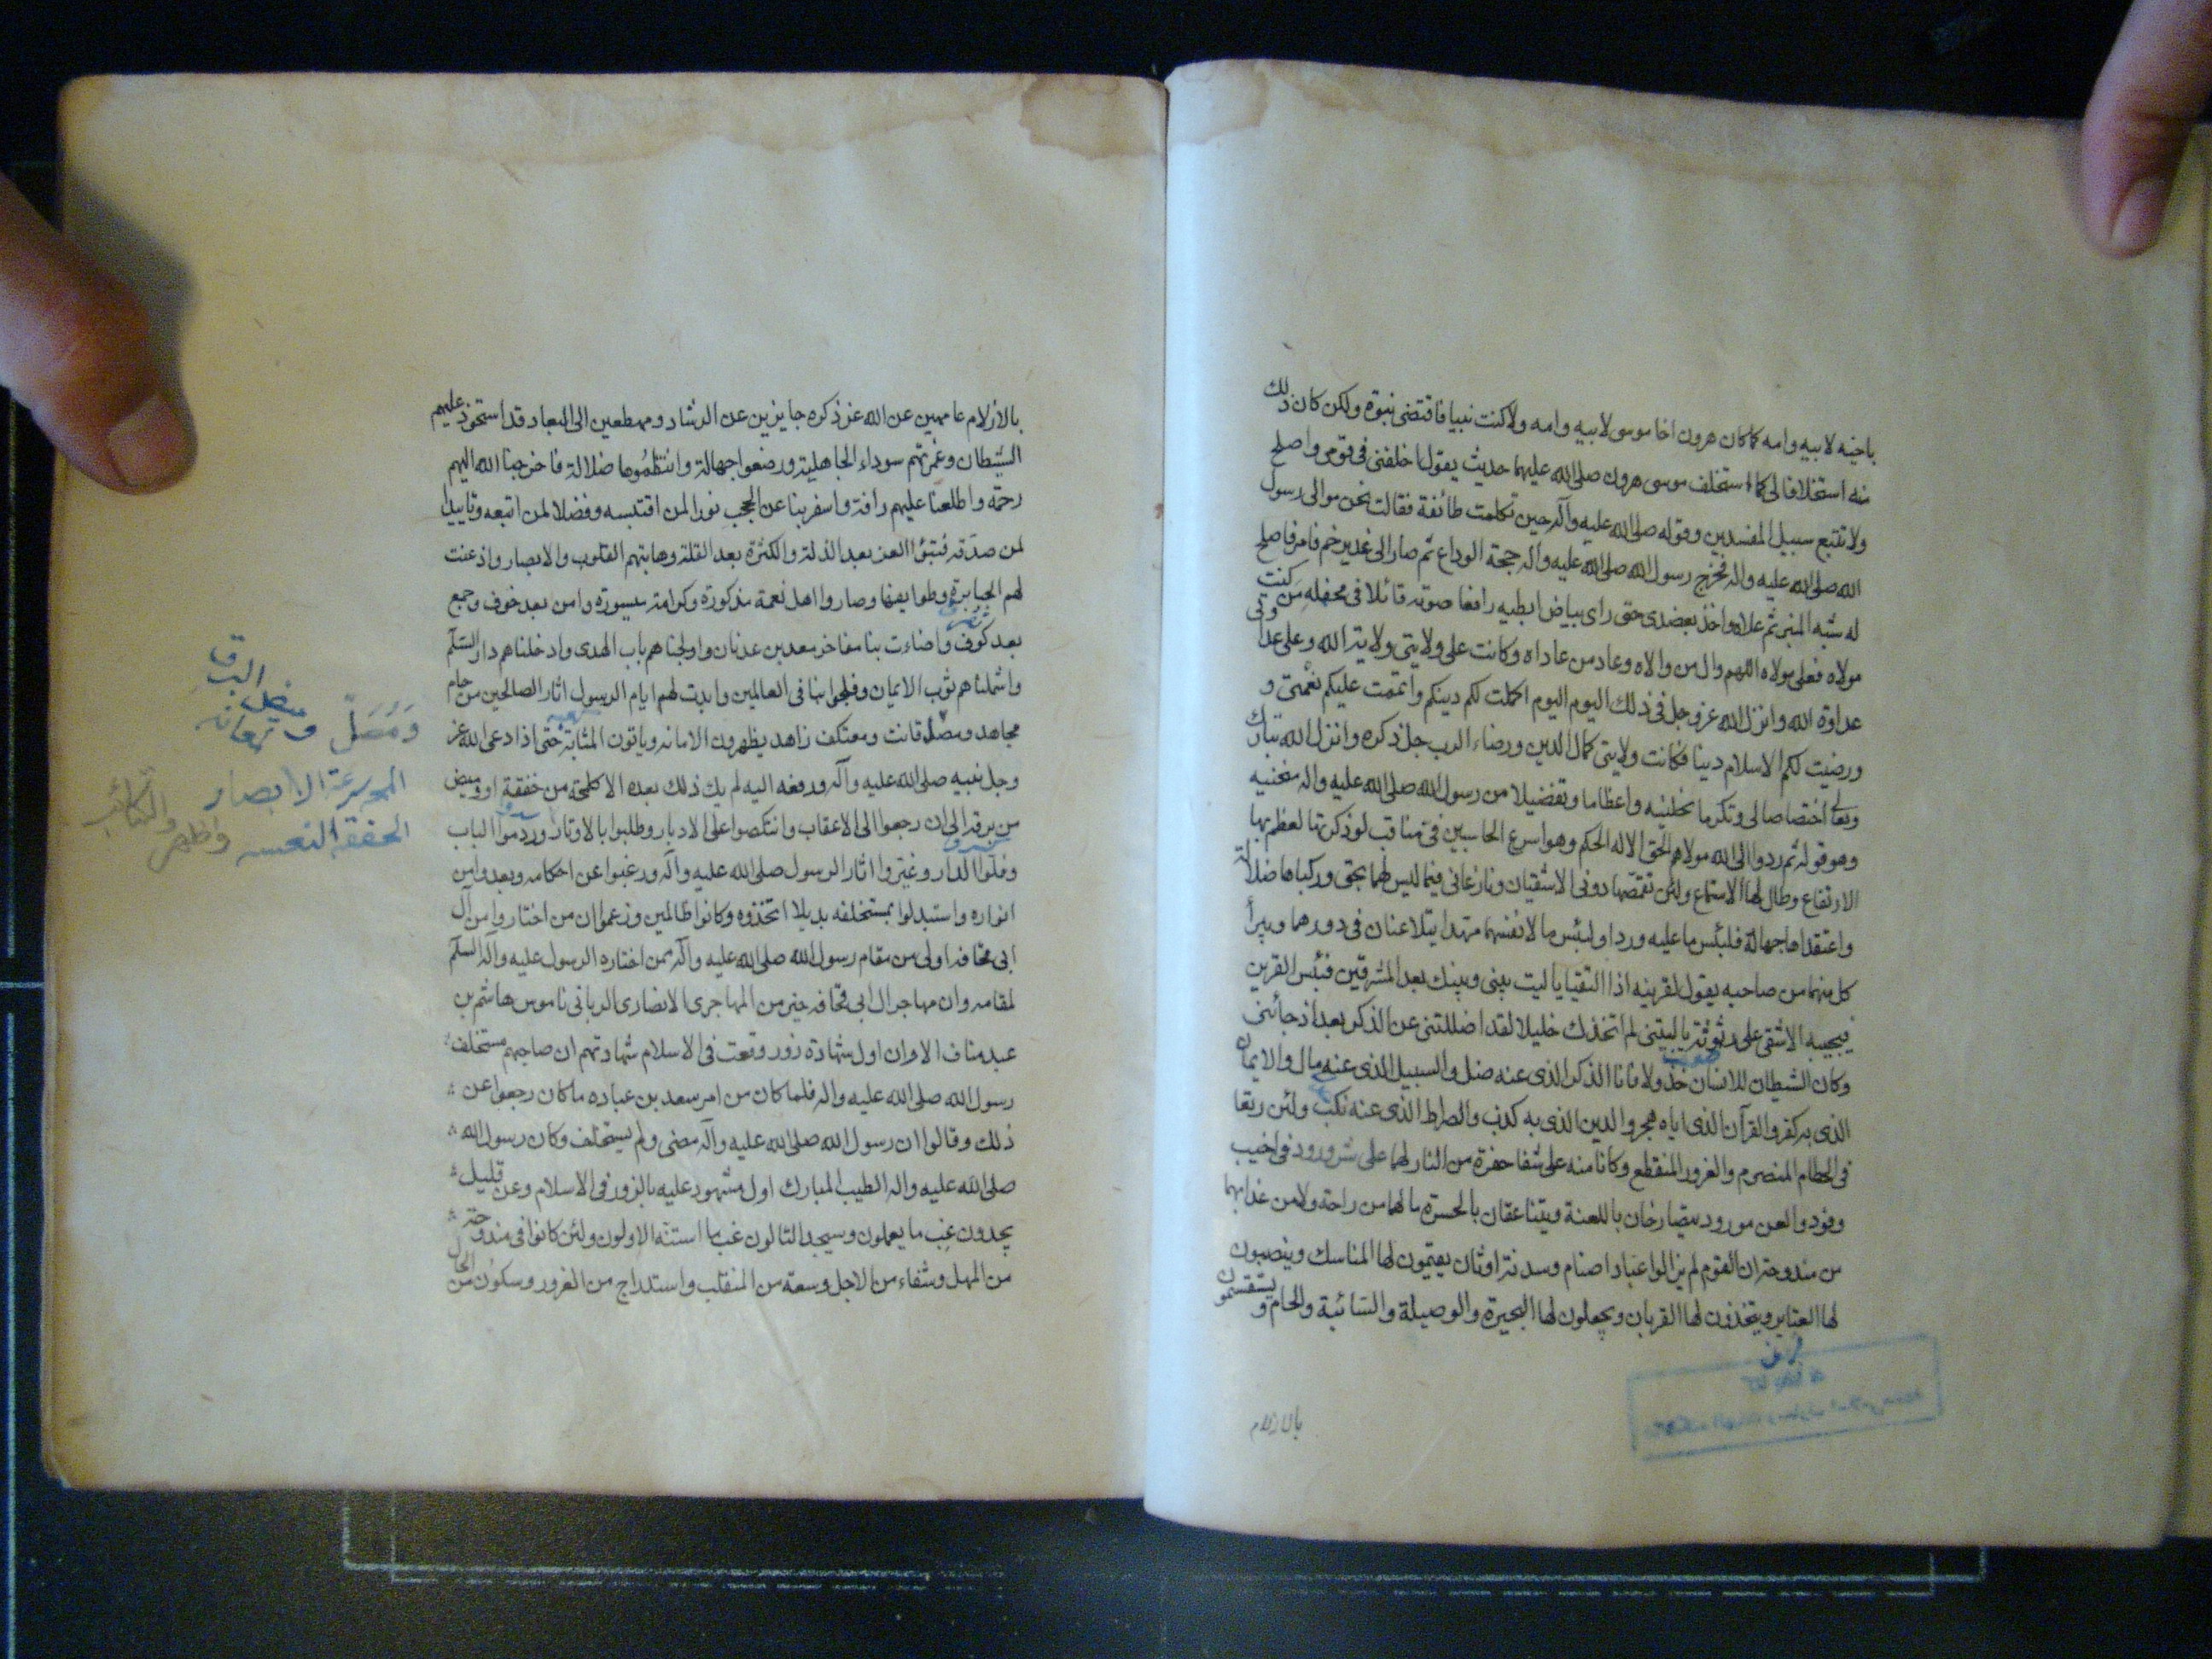 باخيه لابيه وامه كما كان هرون اخا موسى لابيه وامه ولا كنت نبيا فاقتضى نبوة ولكن كان ذلك
منه استخلافا لى كما استخلف موسى هرون صلى الله عليهما حديث يقول اخلفنى فى قومى واصلح
ولا تتبع سبيل المفسدين وقوله صلى الله عليه وآله حين تكلمت طائفة فقالت نحن موالى رسول
الله صلى الله عليه واله فخرج رسول الله صلى الله عليه واله حجة الوداع ثم صار الى غدير خم فامر فاصلح
له شبه المنبر ثم علاه واخذ بعضدى حتى راى بياض ابطيه رافعا صوته قائلا فى محفله من كنت
مولاه فعلى مولاه اللهم وال من والاه وعاد من عاداه وكانت على ولايتى ولاية الله وعلى عداوتى
عداوة الله وانزل الله عز وجل فى ذلك اليوم اليوم اكملت لكم دينكم واتممت عليكم نعمتى و
ورضيت لكم الاسلام دينا فكانت ولايتى كمال الدين ورضاء الرب جل ذكره وانزل الله تبارك
وتعالى اختصاصا لى وتكرما نحلنيه واعظاما وتفضيلا من رسول الله صلى الله عليه واله منحنيه
وهو قوله ثم ردوا الى الله مولاهم الحق الا له الحكم وهو اسرع الحاسبين فى مناقب لو ذكرتها لعظم بها
الارتفاع وطال لها الاستماع ولئن تقمصها دونى الاشقيان ونازعانى فيما ليس لهما بحق وركباها ضلالة
واعتقداها جهالة فلبئس ما عليه وردا ولبئس ما لانفسهما مهدا يتلاعنان فى دورهما ويبرأ
كل منهما من صاحبه يقول لقرينه اذا التقيا يا ليت بينى وبينك بعد المشرقين فبئس القرين
فيجيبه الاشقى على رثوثة يا ليتنى لم اتخذك خليلا لقد اضللتنى عن الذكر بعد اذ جائنى
وكان الشيطان للانسان خذولا فانا الذكر الذى عنه ضل والسبيل الذى عنه مال والايمان
الذى به كفر والقرآن الذى اياه هجر والدين الذى به كذب والصراط الذى عنه نكب ولئن رتعا
فى الحطام المنصرم والغرور المنقطع وكانا منه على شفا حفرة من النار لهما على شر ورود فى اخيب
وفود والعن مورود يتصارخان باللعنة ويتناعقان بالحسرة ما لهما من راحة ولا من عذابهما
من مندوحة ان القوم لم يزالوا عباد اصنام وسدنة اوثان يقيمون لها المناسك وينصبون
لها العتاير ويتخذون لها القربان ويجعلون لها البحيرة والوصيلة والسائبة والحام و يستقسمون
بالازلام
بالازلام عامهين عن الله عز ذكره جايزين عن الرشاد ومهطعين الى البعاد قد استحوذ عليهم
الشيطان وغمرتهم سوداء الجاهلية ورضعوا جهالة وانتظموها ضلالة فاخرجنا الله اليهم
رحمة واطلعنا عليهم رافة واسفر بنا عن الحجب نورا لمن اقتبسه وفضلا لمن اتبعه وتاييدا
لمن صدقه فتبوؤا العز بعد الذلة والكثرة بعد القلة وهابتهم القلوب والابصار واذعنت
لهم الجبابرة وطوايفها وصاروا اهل نعمة مذكورة وكرامة ميسورة وامن بعد خوف وجمع
بعد كوف واضاءت بنا مفاخر معد بن عدنان واولجناهم باب الهدى وادخلناهم دار السلام
واشملناهم ثوب الايمان وفلجوا بنا فى العالمين وابدت لهم ايام الرسول اثار الصالحين من حام
مجاهد ومصل قانت ومعتكف زاهد يظهرون الامانة وياتون المثابة حتى اذا دعى الله عز
وجل نبيه صلى الله عليه وآله ورفعه اليه لم يك ذلك بعده الا كلمحة من خفقة او وميض
من برقة الى ان رجعوا الى الاعقاب وانتكصوا على الادبار وطلبوا بالاوتار وردموا الباب
وفلوا الدار وغيروا اثار الرسول صلى الله عليه وآله ورغبوا عن احكامه وبعدوا من
انواره واستبدلوا بمستخلفه بديلا اتخذوه وكانوا ظالمين وزعموا ان من اختاروا من آل
ابى قحافة اولى من مقام رسول الله صلى الله عليه وآله ممن اختاره الرسول عليه وآله السلام
لمقامه وان مهاجر ال ابى قحافه خير من المهاجرى الانصارى الربانى ناموس هاشم بن
عبد مناف الا وان اول شهادة زور وقعت فى الاسلام شهادتهم ان صاحبهم مستخلف
رسول الله صلى الله عليه واله فلما كان من امر سعد بن عباده ما كان رجعوا عن
ذلك وقالوا ان رسول الله صلى الله عليه وآله مضى ولم يستخلف وكان رسول الله
صلى الله عليه واله الطيب المبارك اول مشهود عليه بالزور فى الاسلام وعن قليل
يجدون غب ما يعملون وسيجد التالون غب ما استنه الاولون ولئن كانوا فى مندوحة
من المهل وشفاء من الاجل وسعة من المنقلب واستدراج من الغرور وسكون من الحال
البرق
وميض
ومصل
الابصار